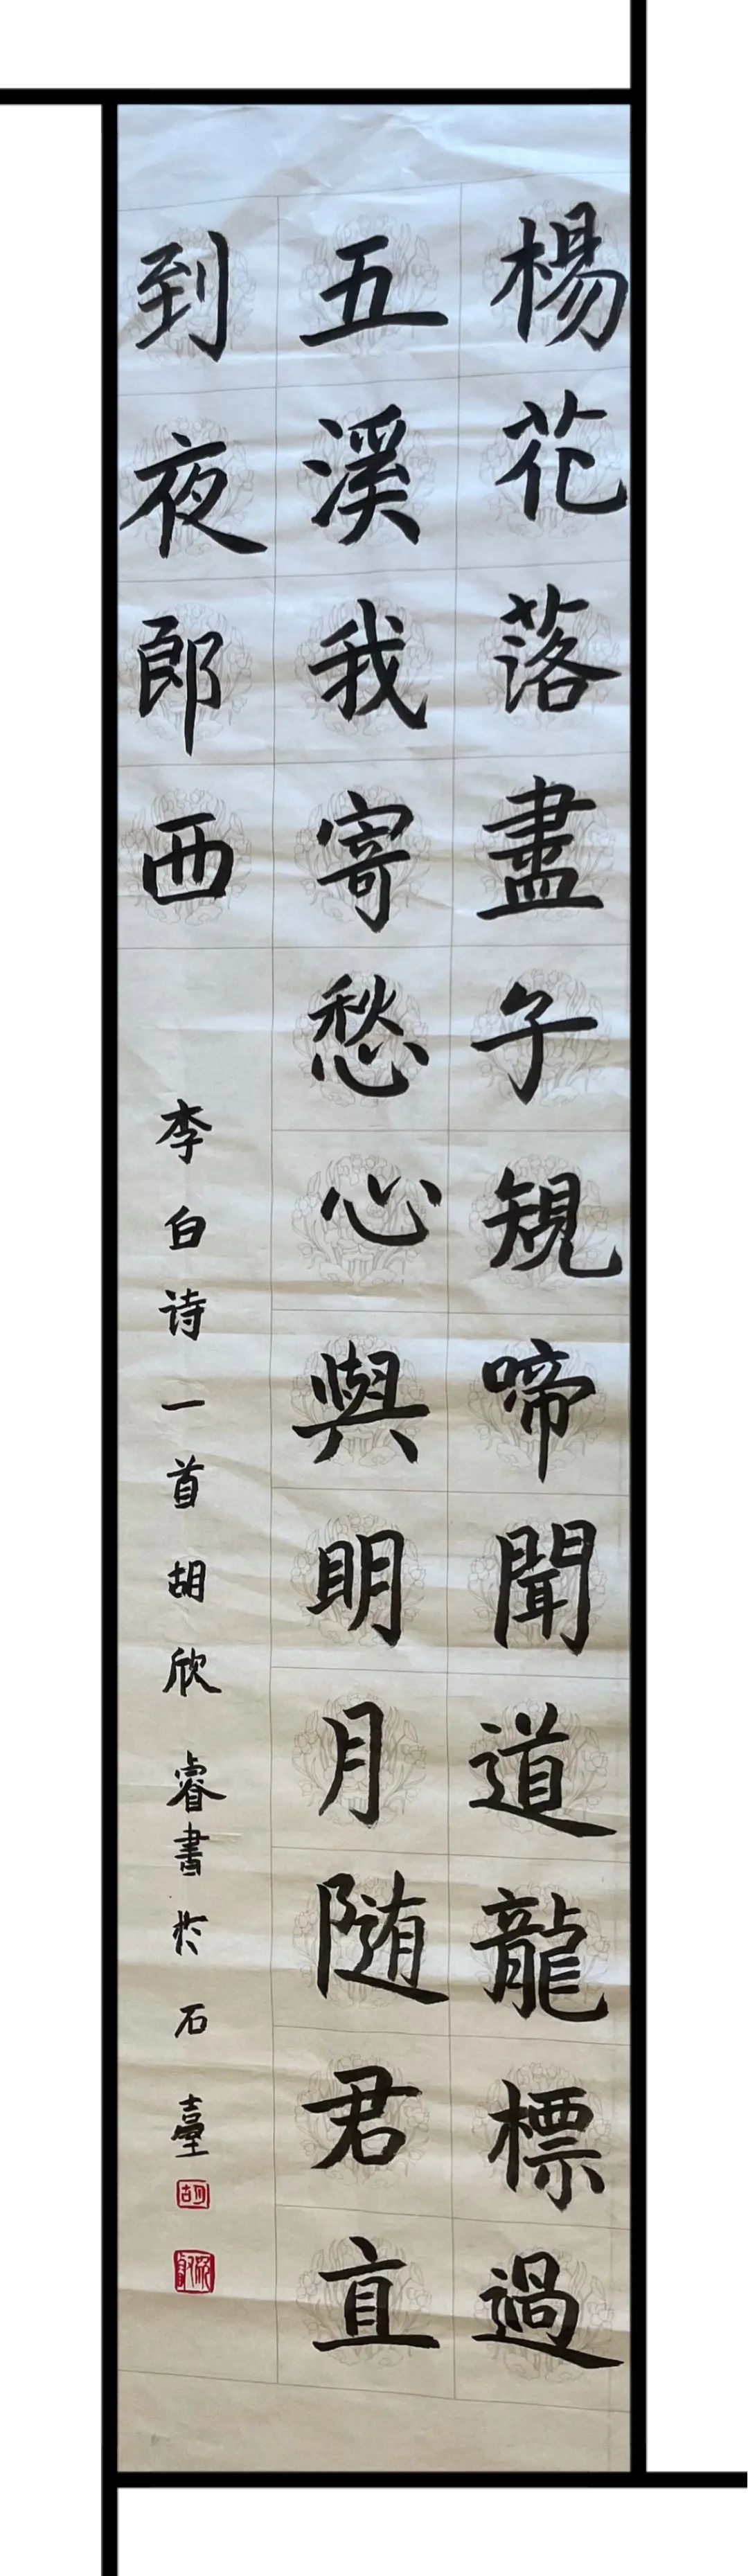 楊花落盡子規啼聞道龍標過
五溪我寄愁心與明月随君直
到夜郎西
李白诗一首胡欣睿書於石臺
胡
欣睿